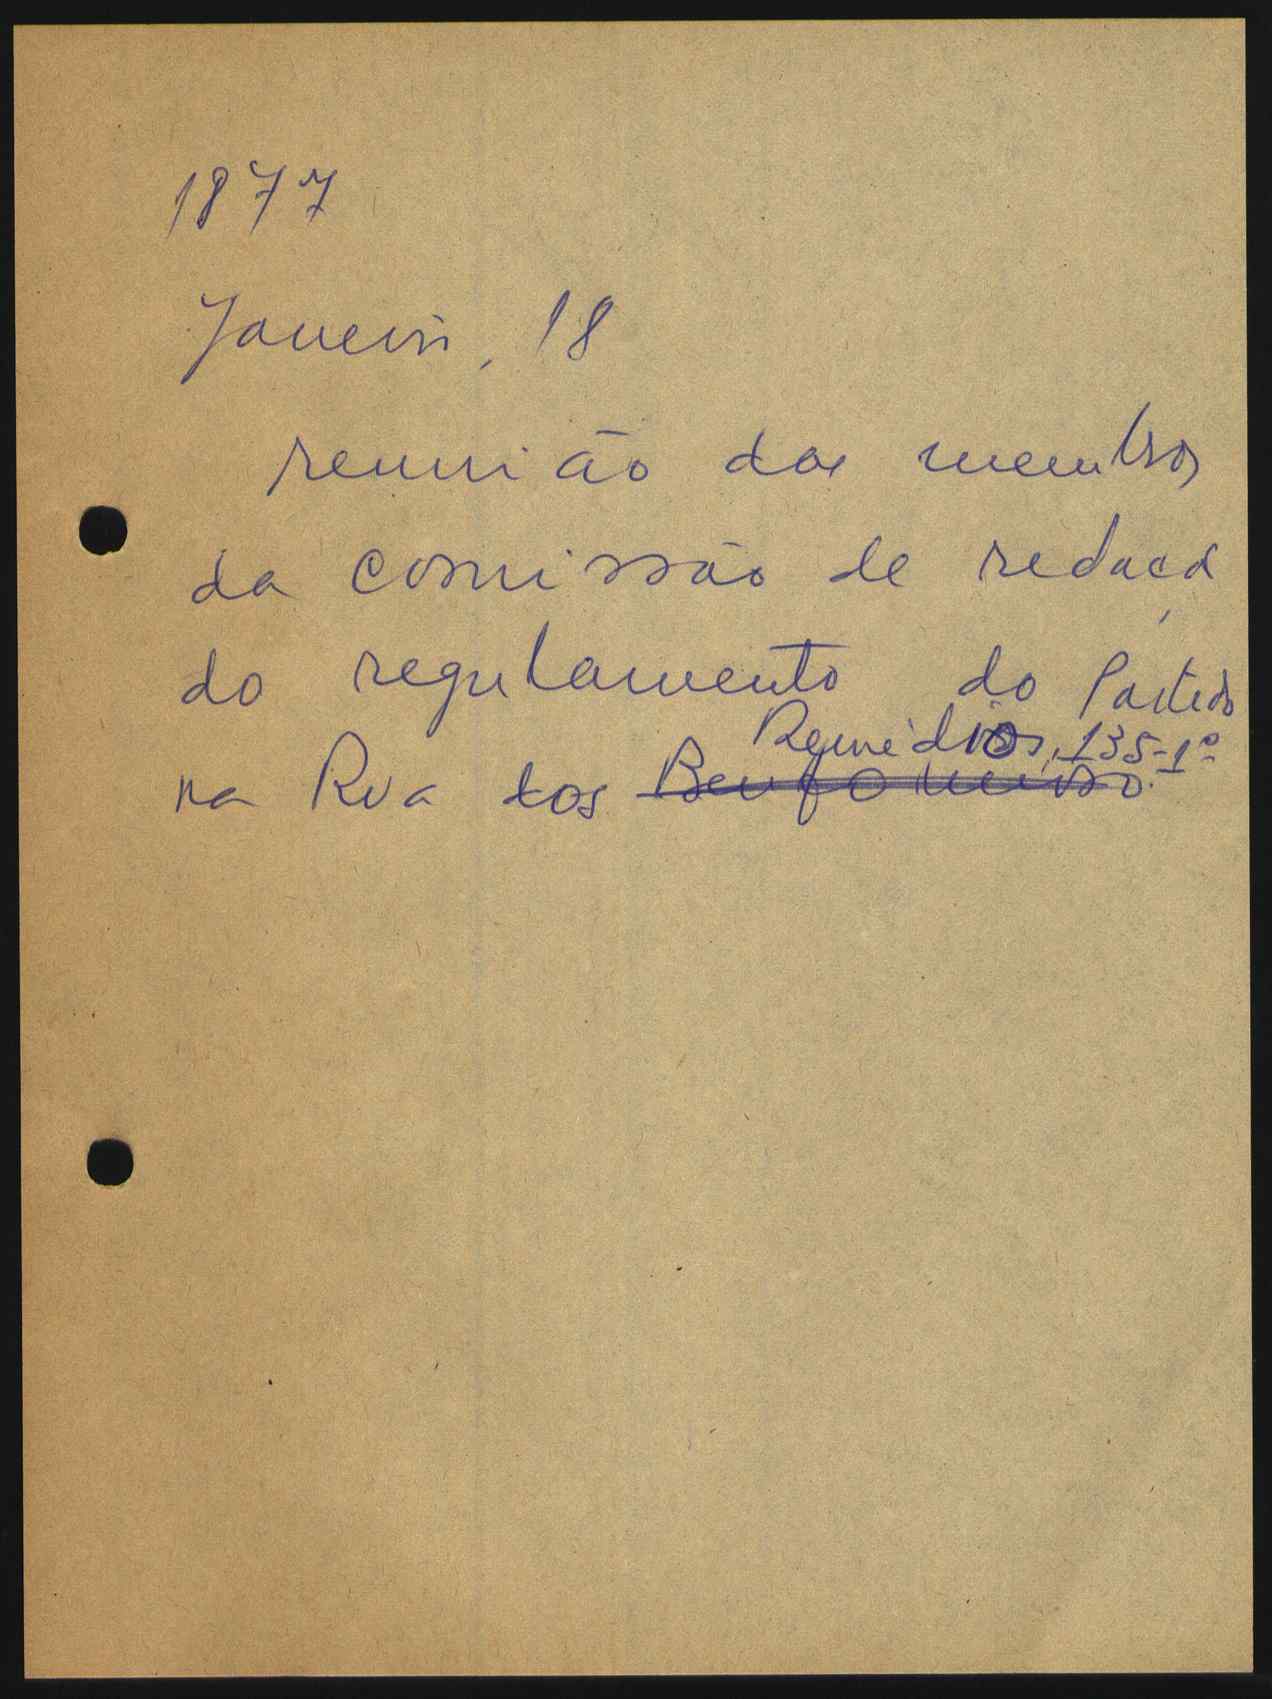 1877
Janeiro, 18
reunião dos membros
da comissão de redaçã
do regulamento do Partido
Remédios, 135-1º
na Rua dos Benformoso.